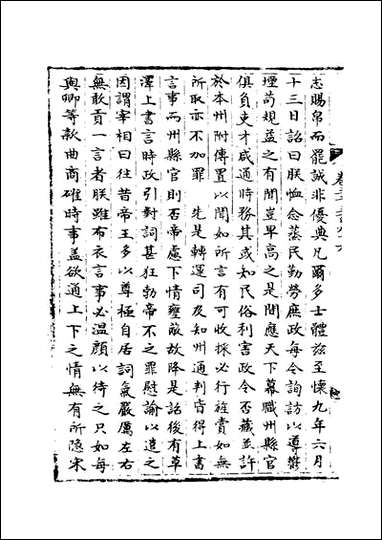 志賜帛而罷誠非優典凡爾多士體茲至懷九年六月
十三日詔曰朕恤念蒸民勤勞庶政每令詢訪以導鬱
堙苟規益之有聞豈卑高之是間應天下幕職州縣官
俱負吏才咸通時務其或知民俗利害政令否臧並許
於本州附傳置以聞如所言有可收採必行旌賞如無
所取亦不加罪 先是轉運司及知州通判皆得上書
言事而州縣官則否帝慮下情壅蔽故降是詔後有草
澤上書言時政引對詞甚狂勃帝不之罪慰諭以遣之
因謂宰相曰往昔帝王多以尊極自居詞氣嚴厲左右
無敢貢一言者朕雖布衣言事必溫顏以待之只如每
與卿等款曲商確時事蓋欲通上下之情無有所隱宋